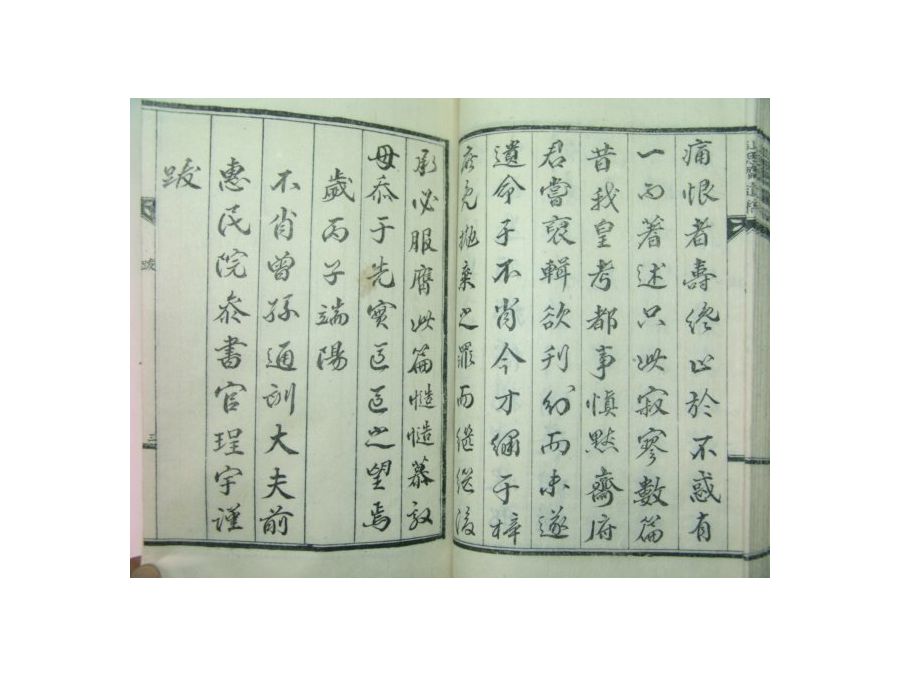 痛恨者壽終止於不惑有
一而著述只此寂寥數篇
昔我皇考都事愼默齋府
君嘗裒輯欲刊㓜而未遂
遺命子不肖今才繡于梓
庶免拋棄之罪而继從後
承必服膺此篇慥慥慕效
毋忝于先實區區之望焉
歲丙子端陽
不肖曾孫通訓大夫前
惠民院叅書官珵宇謹
跋
跋
三